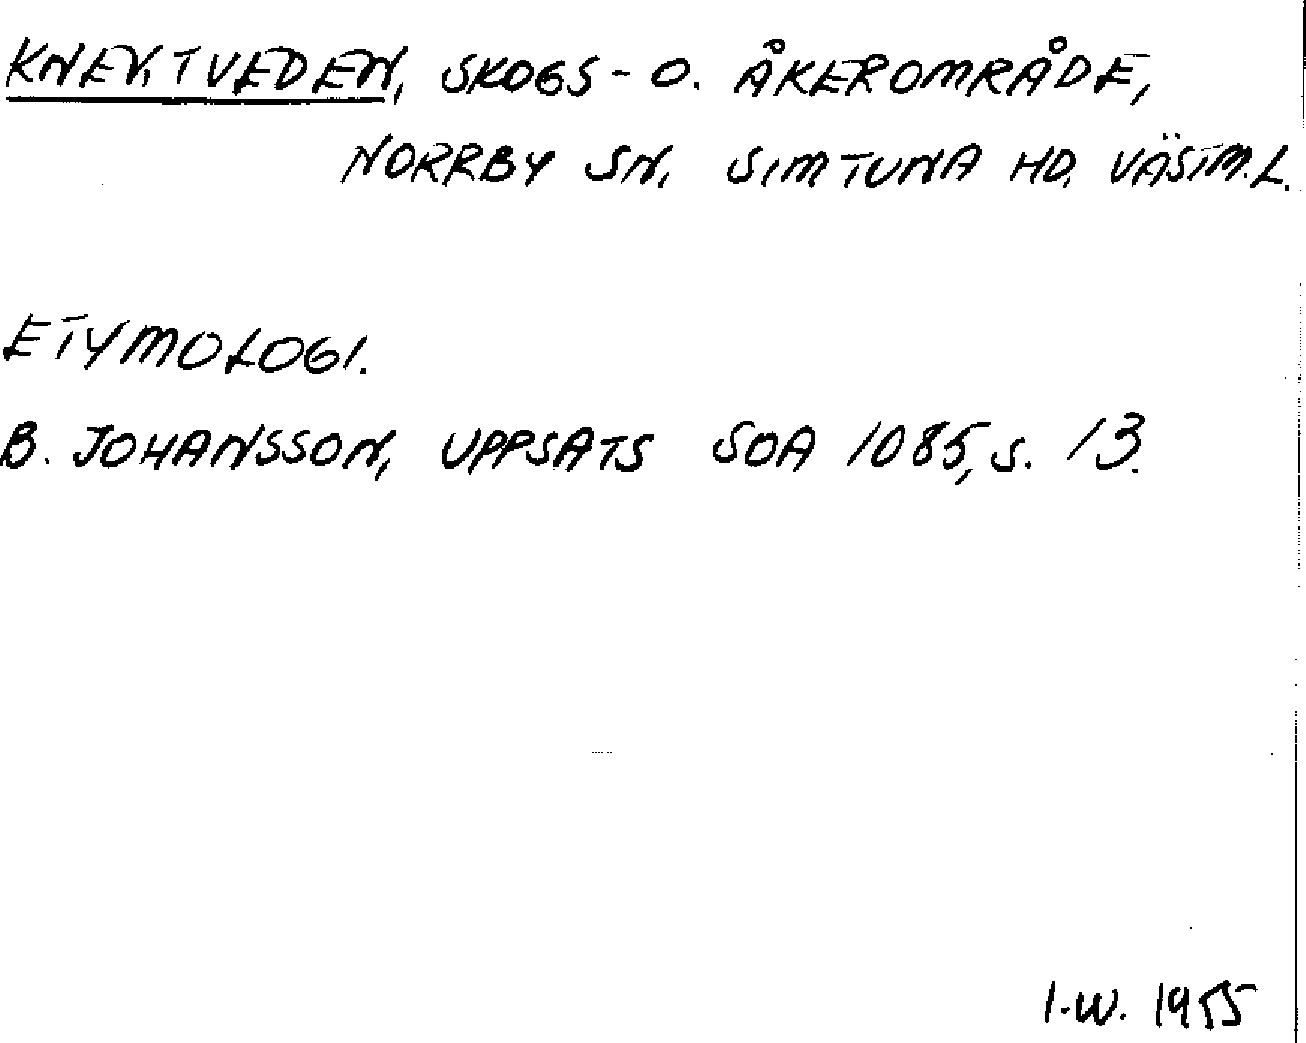 KNEKTVEDEN, SKOGS- O. ÅKEROMRÅDE,
NORRBY SN, SIMTUNA HD, VÄSTM.L.
ETYMOLOGI.
B. JOHANSSON, UPPSATS SOA 1085, S. 13.
I.W. 1955